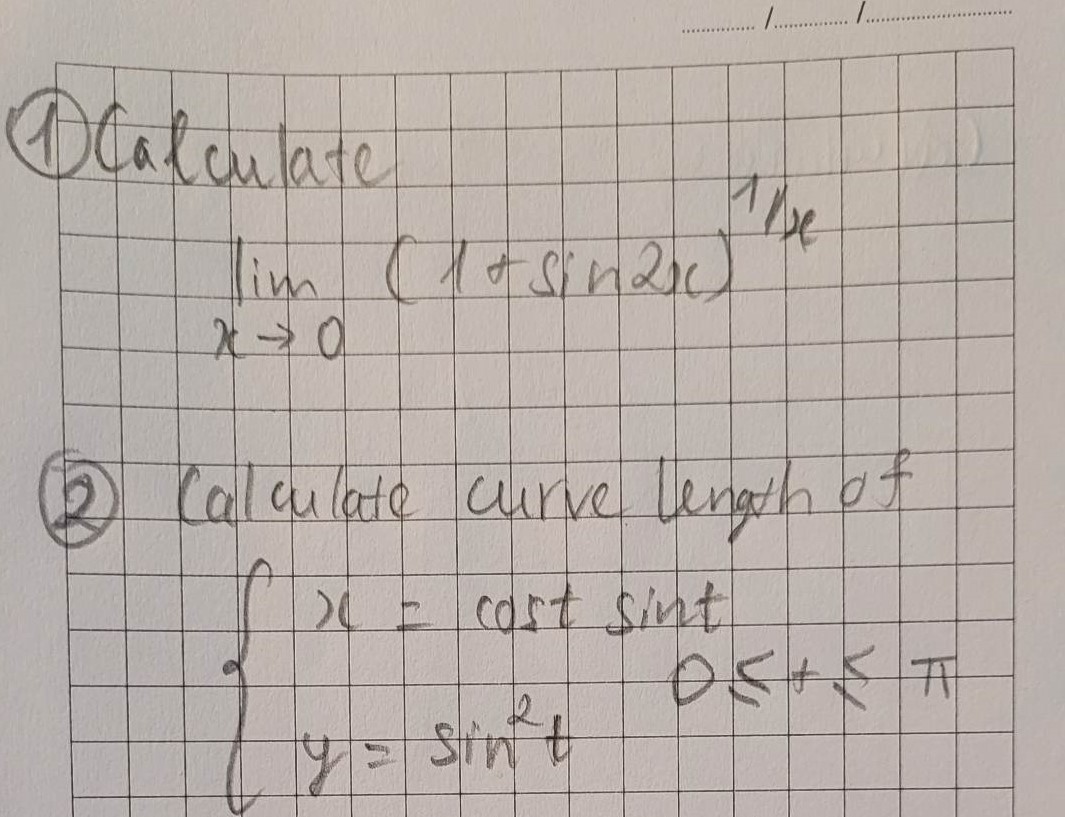 ...../...../.....
① Calculate
lim (1 + sin2x)^1/x
x → 0
② Calculate curve length of
{ x = cost sint
0 ≤ t ≤ π
y = sin²t